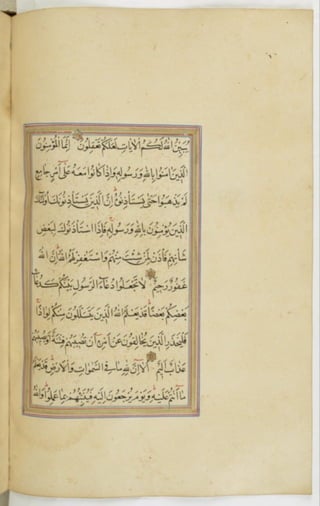 يُبَيِّنُ اللهُ لَكُمُ الْآيَاتِ لَعَلَّكُمْ تَعْقِلُونَ إِنَّمَا الْمُؤْمِنُونَ
الَّذِينَ آمَنُوا بِاللهِ وَرَسُولِهِ وَإِذَا كَانُوا مَعَهُ عَلَى أَمْرٍ جَامِعٍ
لَمْ يَذْهَبُوا حَتَّى يَسْتَأْذِنُوهُ إِنَّ الَّذِينَ يَسْتَأْذِنُونَكَ أُولَئِكَ
الَّذِينَ يُؤْمِنُونَ بِاللهِ وَرَسُولِهِ فَإِذَا اسْتَأْذَنُوكَ لِبَعْضِ
شَأْنِهِمْ فَأْذَنْ لِمَنْ شِئْتَ مِنْهُمْ وَاسْتَغْفِرْ لَهُمُ اللهَ إِنَّ اللهَ
غَفُورٌ رَحِيمٌ لَا تَجْعَلُوا دُعَاءَ الرَّسُولِ بَيْنَكُمْ كَدُعَاءِ
بَعْضِكُمْ بَعْضًا قَدْ يَعْلَمُ اللهُ الَّذِينَ يَتَسَلَّلُونَ مِنْكُمْ لِوَاذًا
فَلْيَحْذَرِ الَّذِينَ يُخَالِفُونَ عَنْ أَمْرِهِ أَنْ تُصِيبَهُمْ فِتْنَةٌ أَوْ يُصِيبَهُمْ
عَذَابٌ أَلِيمٌ أَلَا إِنَّ لِلهِ مَا فِي السَّمَوَاتِ وَالْأَرْضِ قَدْ يَعْلَمُ
مَا أَنْتُمْ عَلَيْهِ وَيَوْمَ يُرْجَعُونَ إِلَيْهِ فَيُنَبِّئُهُمْ بِمَا عَمِلُوا وَاللهُ